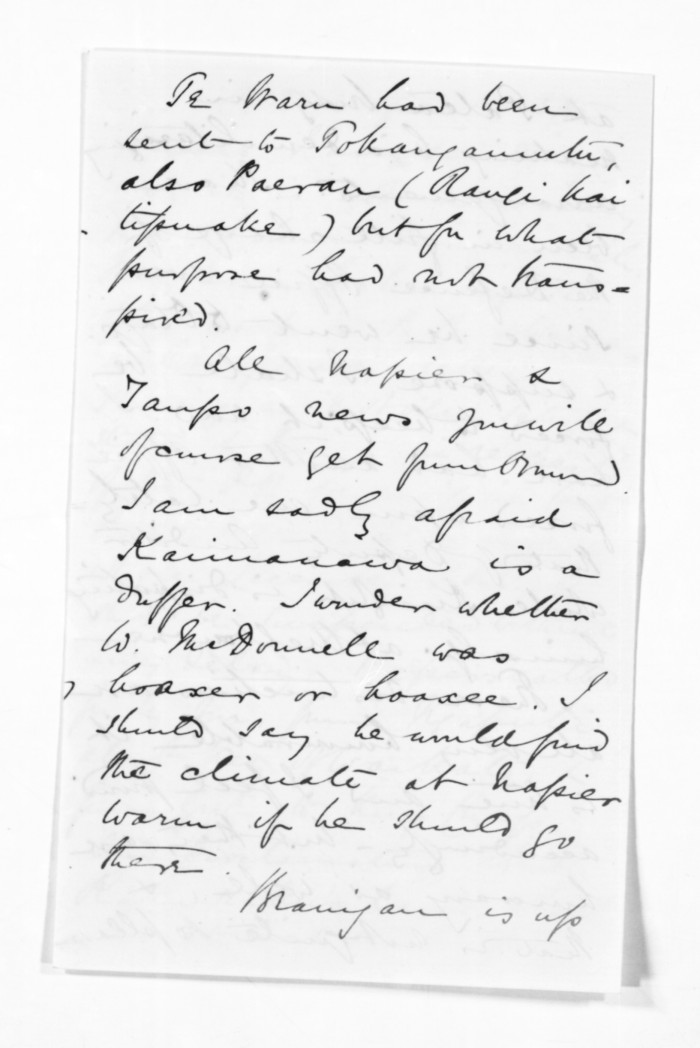 Te Waru had been
sent to Tokangamutu,
also Paerau (Rangi kai
tipuake) but for what
purpose had not trans=
pired.
All Napier &
Taupo news you will
of course get from Ormond
I am sadly afraid
Kaimanawa is a
duffer. I wonder whether
W. McDonnell was
hoaxer or hoaxee. I
should say he would find
the climate at Napier
warm if he should go
there.
Branigan is up